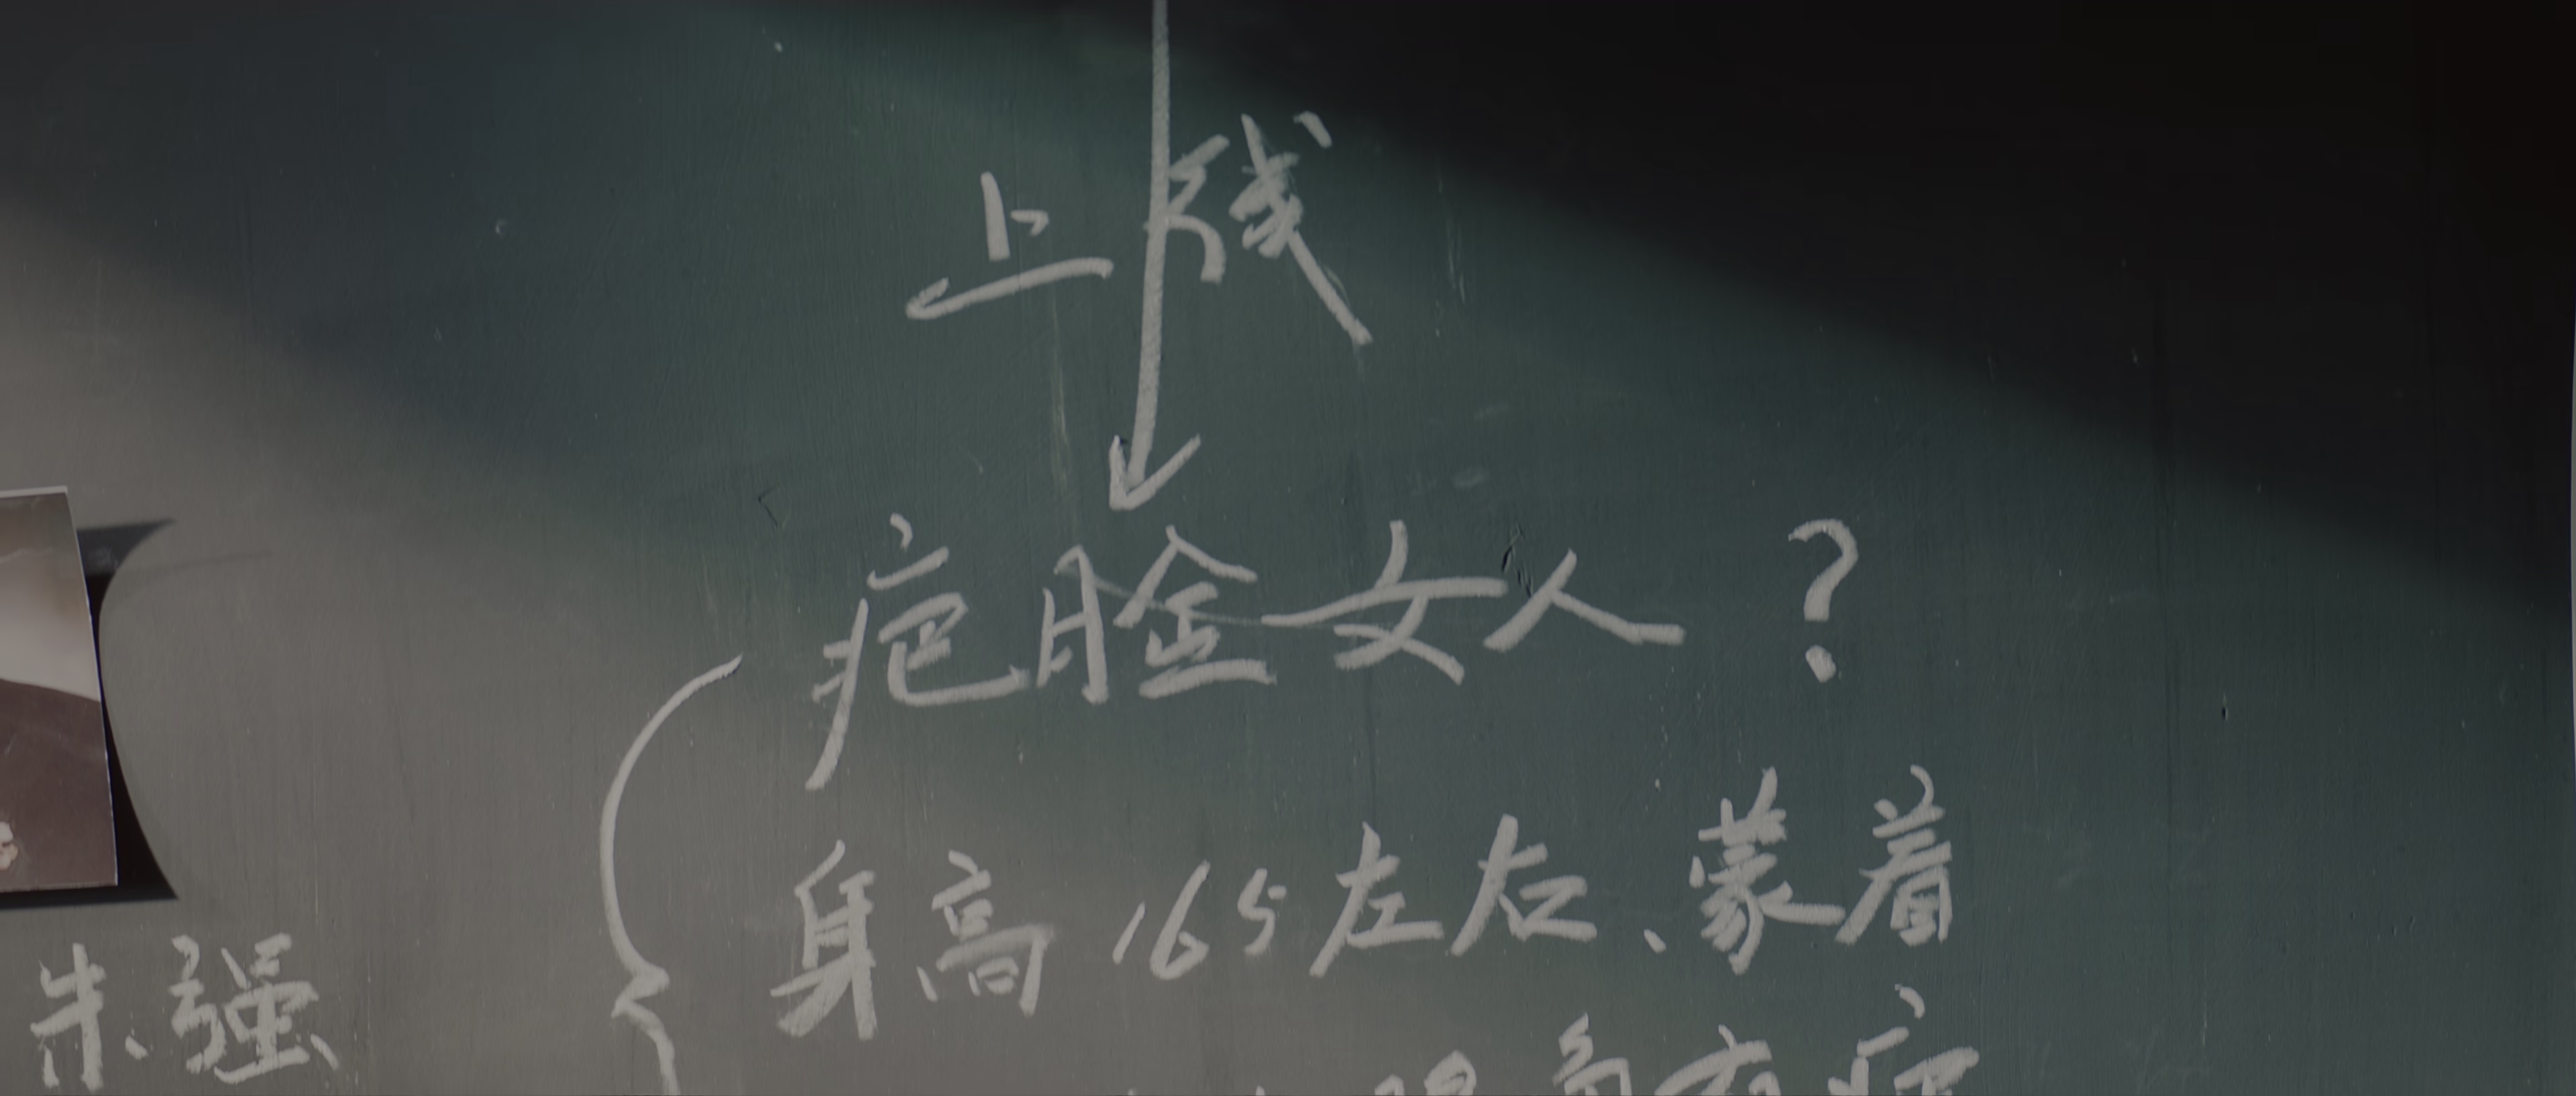 上线
疤脸女人?
身高165左右、蒙着
朱强
眼角有疤